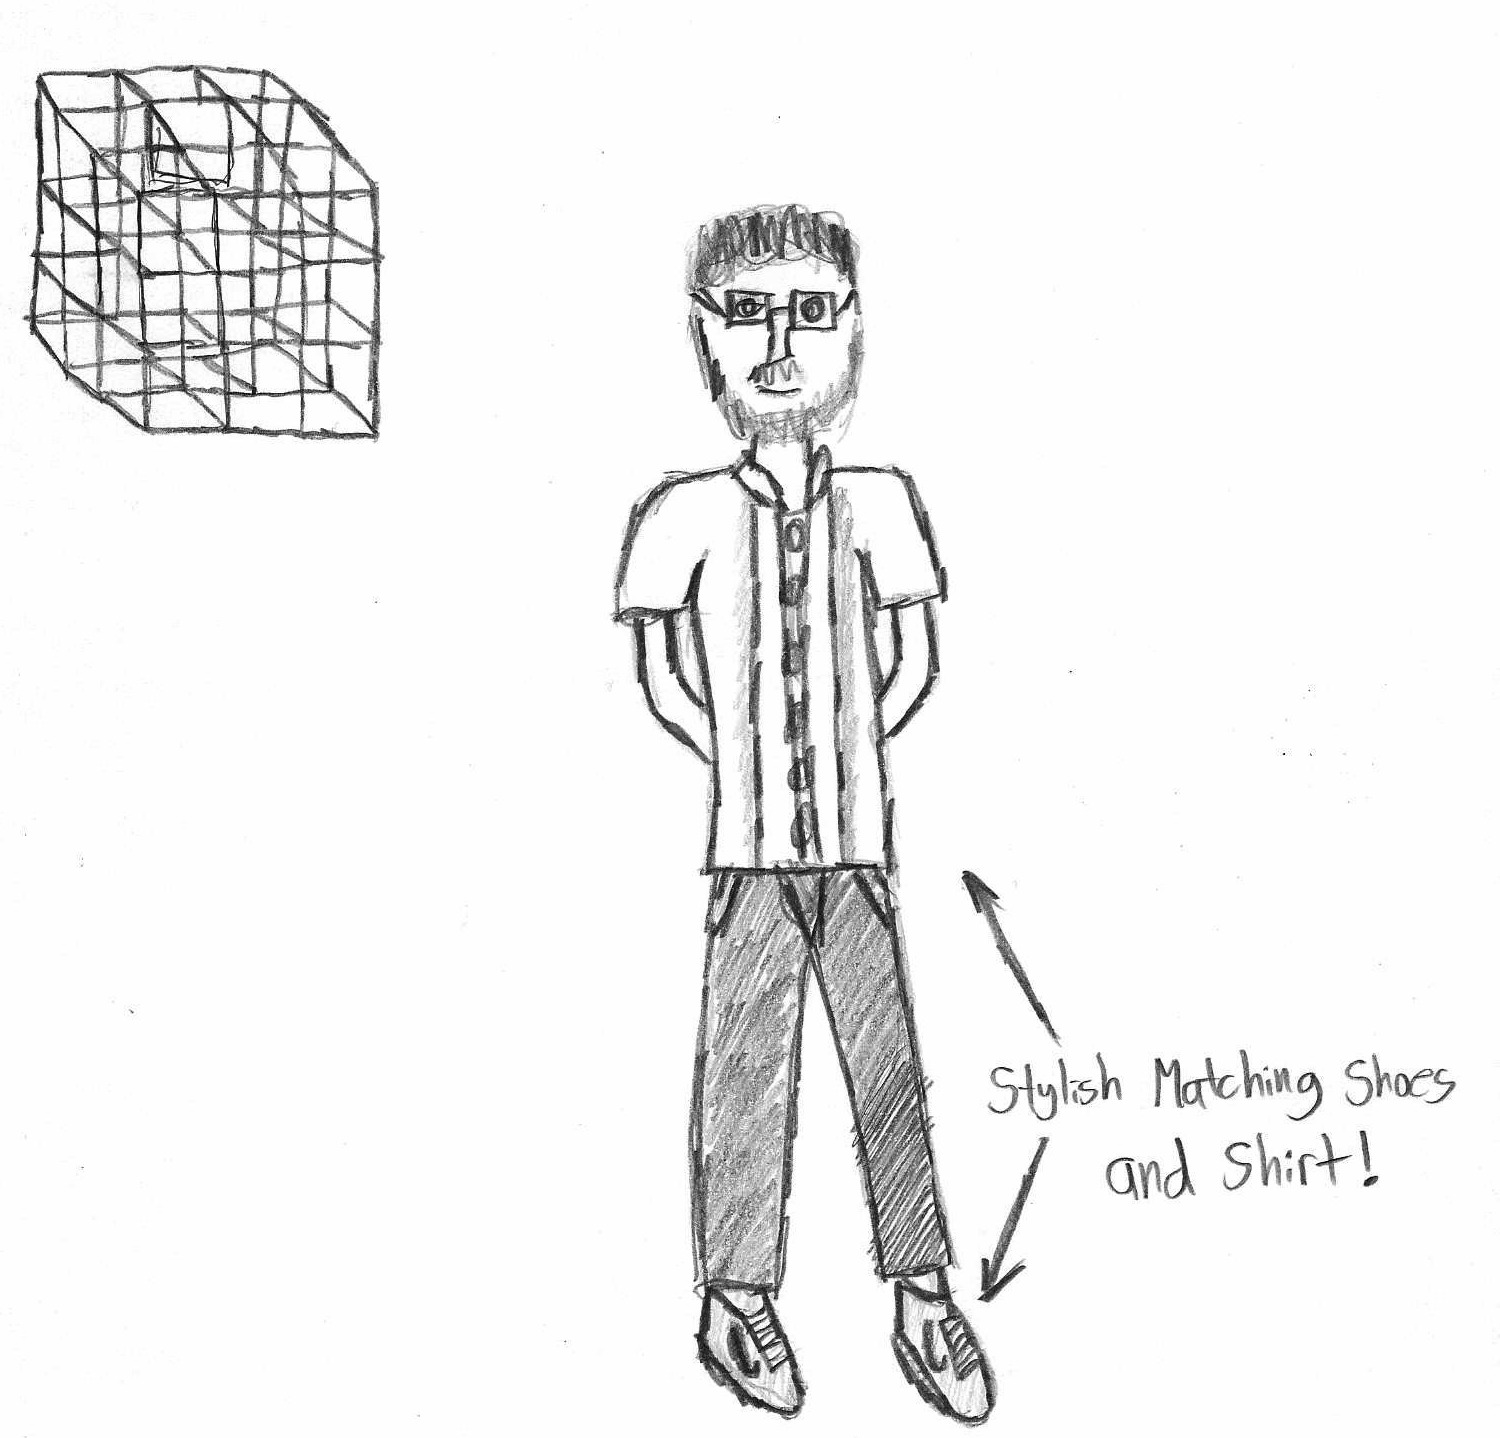 Stylish Matching Shoes
and Shirt!